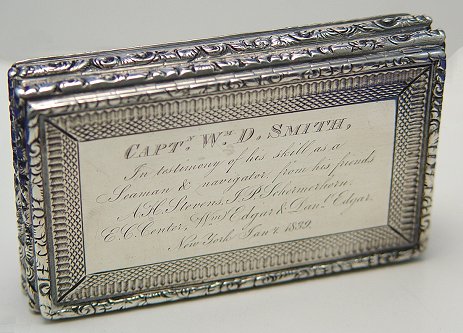 CAPTN. WM. D. SMITH,
In testimony of his skill as a
Seaman & navigator, from his friends
A.H. Stevens, J.P. Schermerhorn
E.C. Center, Wm. Edgar & Danl. Edgar.
New York Jan 4. 1839.